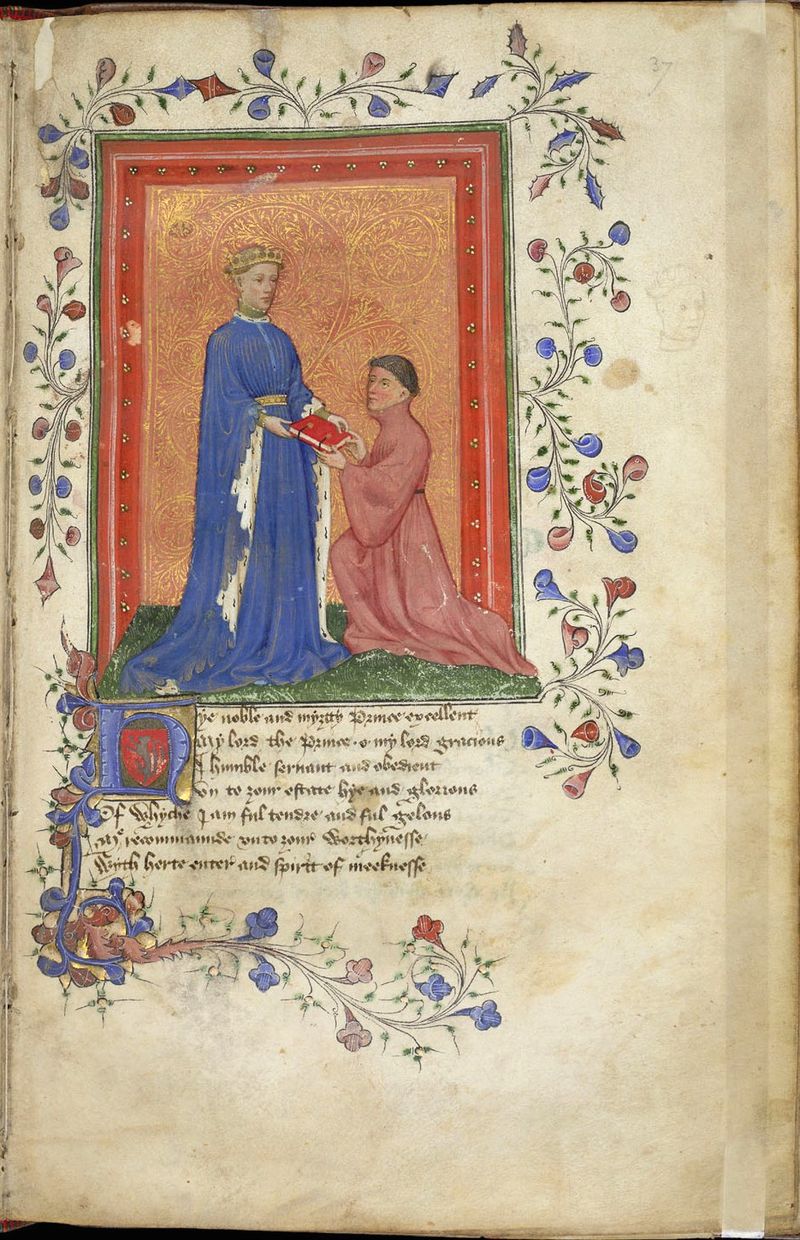 37
Hye noble and myghty Prince excellent
My lord the Prince o my lord gracious
I humble seruant and obedient
Vn to ȝour estate hye and glorious
Of Whyche I am ful tendre and ful gelous
Me recommaunde vnto ȝour Worthynesse
Wyth herte enter and spirit of meeknesse